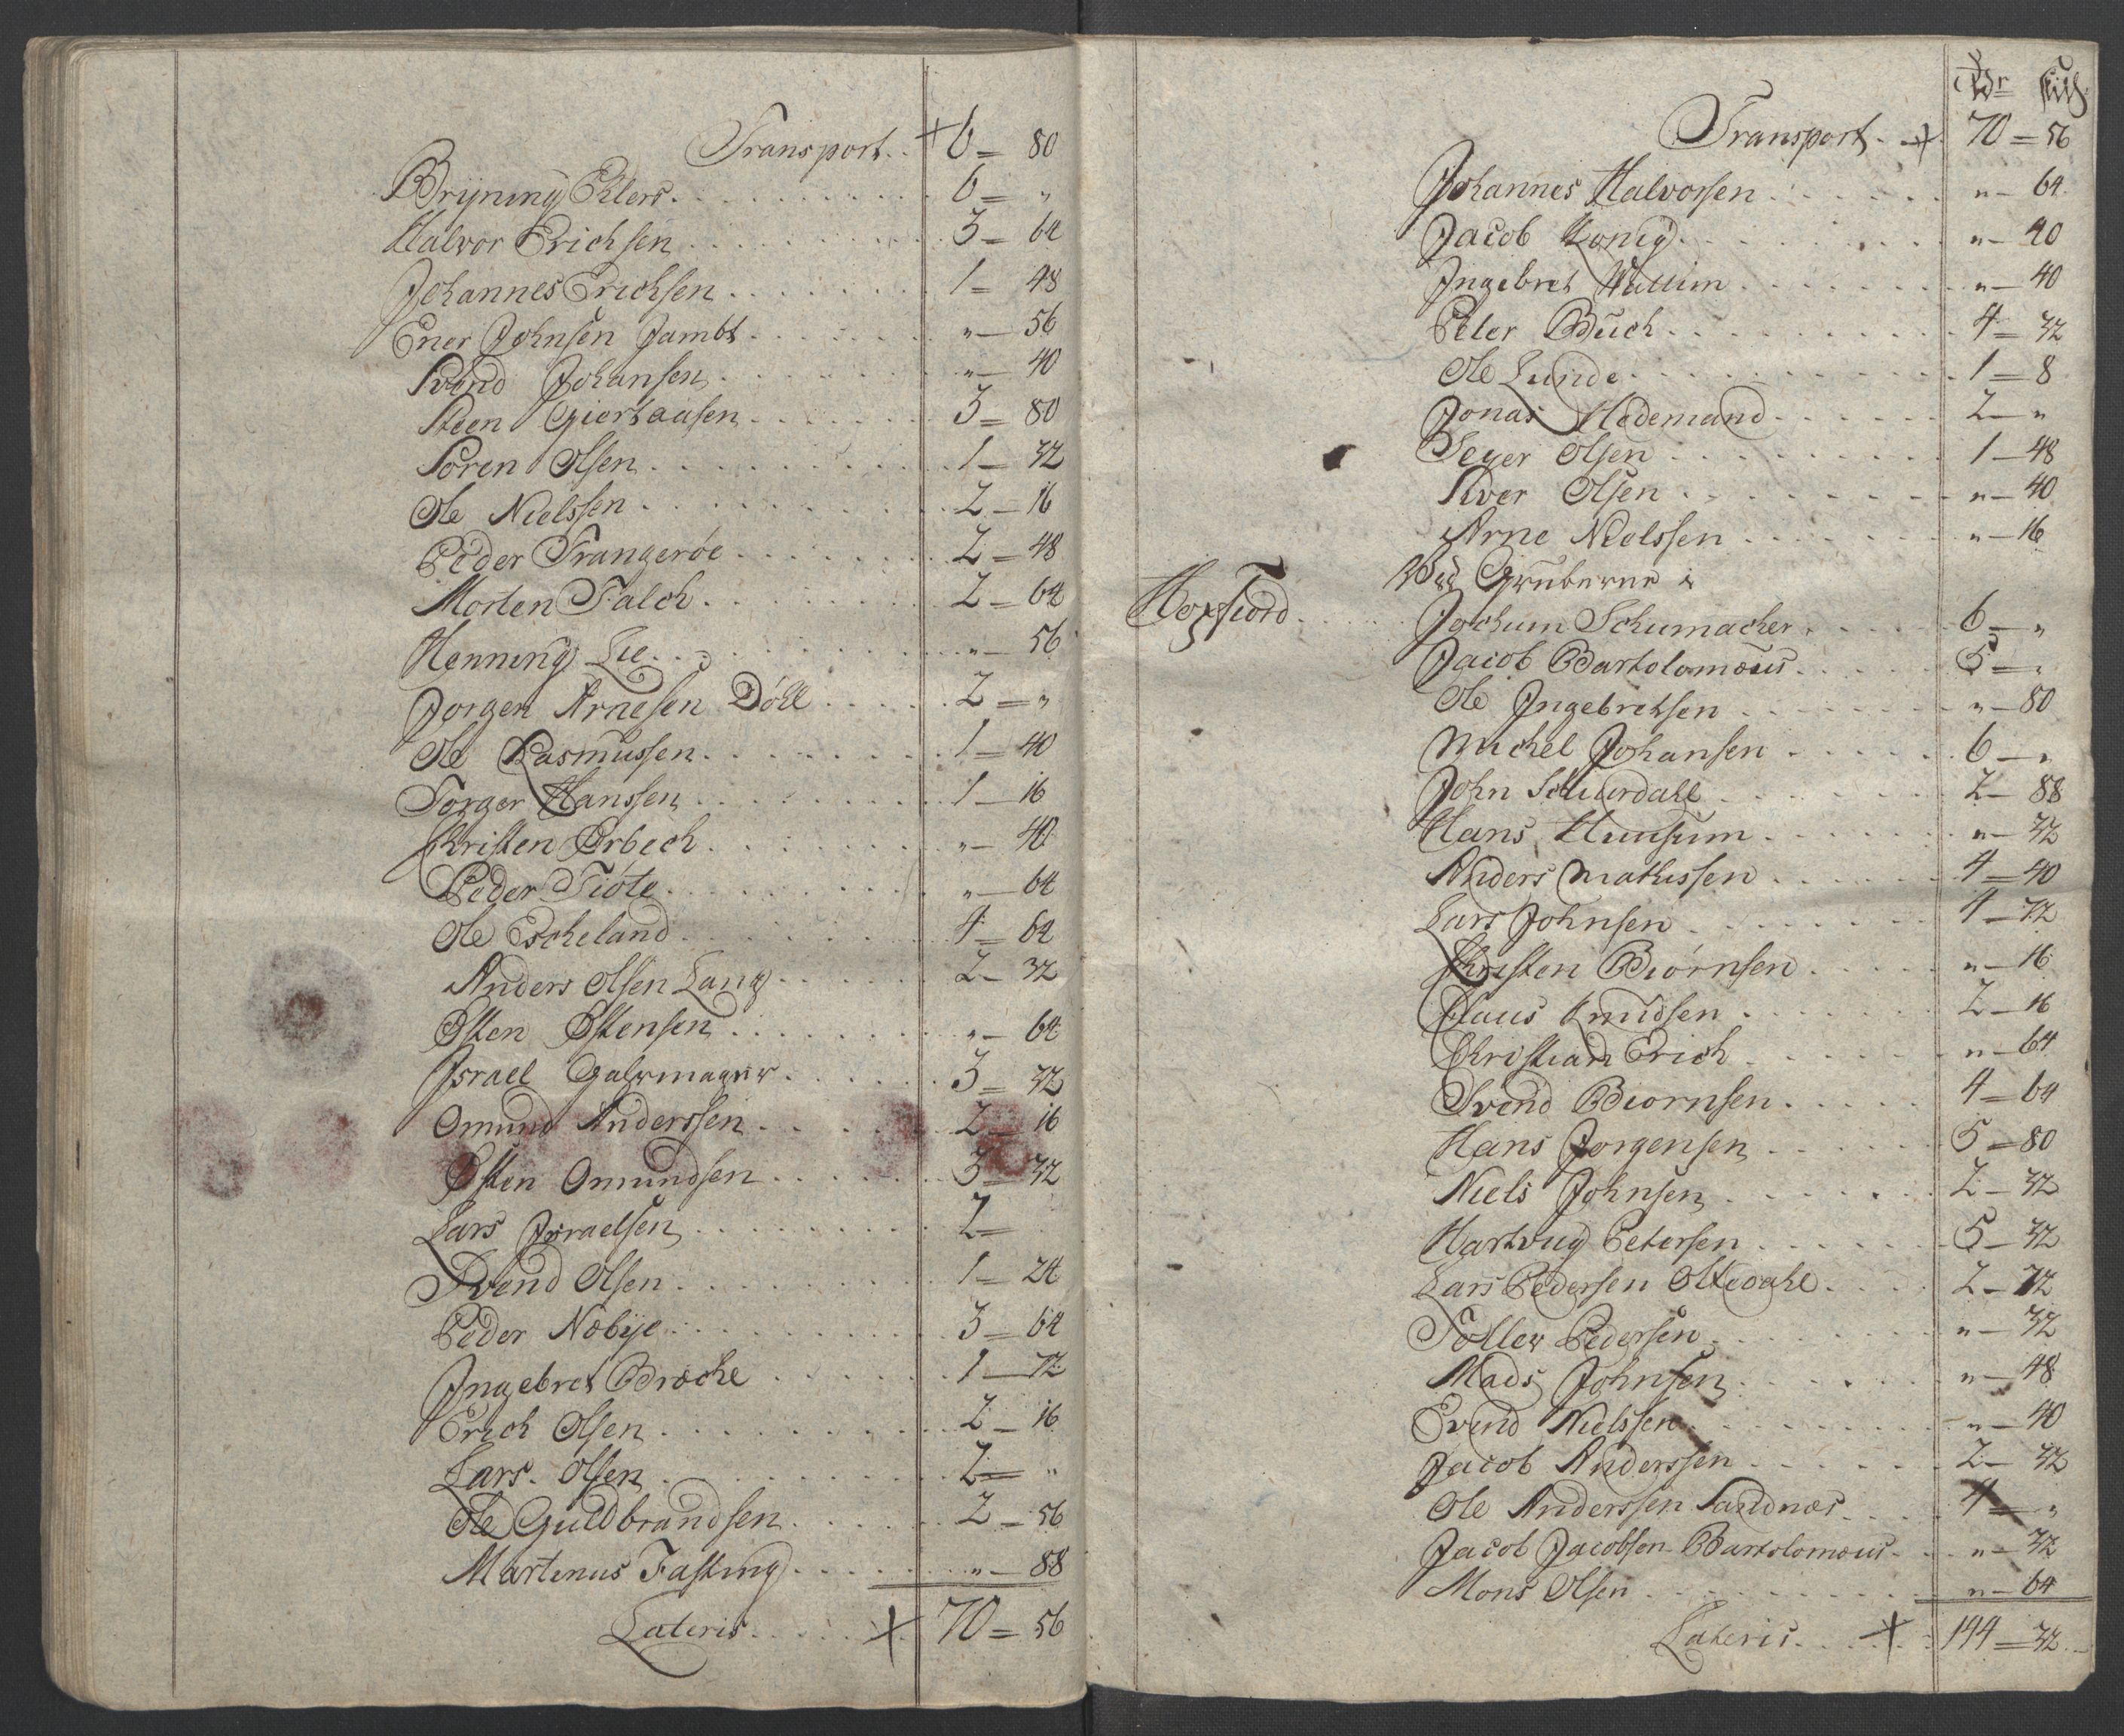 Transport . . + 6 = 80
Brijning Ehlers . . . 6 = "
Halvor Erichsen . . . 3 = 64
Johannes Erichsen . . . 1 = 48
Ener Johnsen Jambt . . . " — 56
Svend Johansen . . . " — 40
Steen Giertsen . . . 3 = 80
Søren Olsen . . . 1 — 32
Ole Nielssen . . . 2 — 16
Peder Trangerøe . . . 2 = 48
Morten Falch . . . 2 = 64
Henning Lie . . . " — 56
Jørgen Arnesen Döhl . . . 2 = "
Ole Rasmussen . . . 1 = 40
Torger Hanssen . . . 1 — 16
Christen Ørbech . . . " — 40
Peder Fiöte . . . " — 64
Ole Escheland . . . 4 = 64
Anders Olsen Lang . . . 2 — 32
Østen Østensen . . . " — 64
Israel Galrmager . . . 3 = 32
Omund Anderssen . . . 2 — 16
Østen Omundsen . . . 3 = 32
Lars Israelsen . . . 2 =
Svend Olsen . . . 1 = 24
Peder Nebye . . . 3 = 64
Ingebret Broche . . . 1 — 72
Erich Olsen . . . 2 — 16
Lars Olsen . . . 2 = "
Ole Guldbrandsen . . . 2 — 56
Martinus Fasting . . . " — 88
Lateris . . . + 70 = 56
Rdr ſkill
Transport . + 70 = 56
Johannes Halvorsen . . . " — 64
Jacob Konig . . . " — 40
Ingebret Wullum . . . " — 40
Peter Buch . . . 4 = 32
Ole Lunde . . . 1 = 8
Jonas Hedemand . . . 2 — "
Seyer Olsen . . . 1 — 48
Siver Olsen . . . " — 40
Arne Nielssen . . . " — 16
Ved Gruberne i
Hopfiord . . . Jochum Schumacher . . . 6 — "
Jacob Bartolomæus . . . 5 = "
Ole Ingebretsen . . . " — 80
Michel Johansen . . . 6 — "
John Schurdahl . . . 2 — 88
Hans Huusum . . . " — 32
Anders Mathissen . . . 4 = 40
Lars Johnsen . . . 4 — 72
Christen Biørnsen . . . " — 16
Claus Knudsen . . . 2 — 16
Christian Erich . . . " — 64
Svend Biornsen . . . 4 = 64
Hans Jørgensen . . . 5 = 80
Niels Johnsen . . . 2 — 32
Hartvig Petersen . . . 5 — 32
Lars Pedersen Oltedahl . . . 2 — 72
Tollev Pedersen . . . " — 32
Mads Johnsen . . . " — 48
Evind Nielssen . . . " — 40
Jacob Anderssen . . . 2 — 32
Ole Anderssen Sandnæs . . . 4 = "
Jacob Jacobsen Bartolomæus . . . " — 32
Mons Olsen . . . " — 64
Lateris . . . + 144 = 32